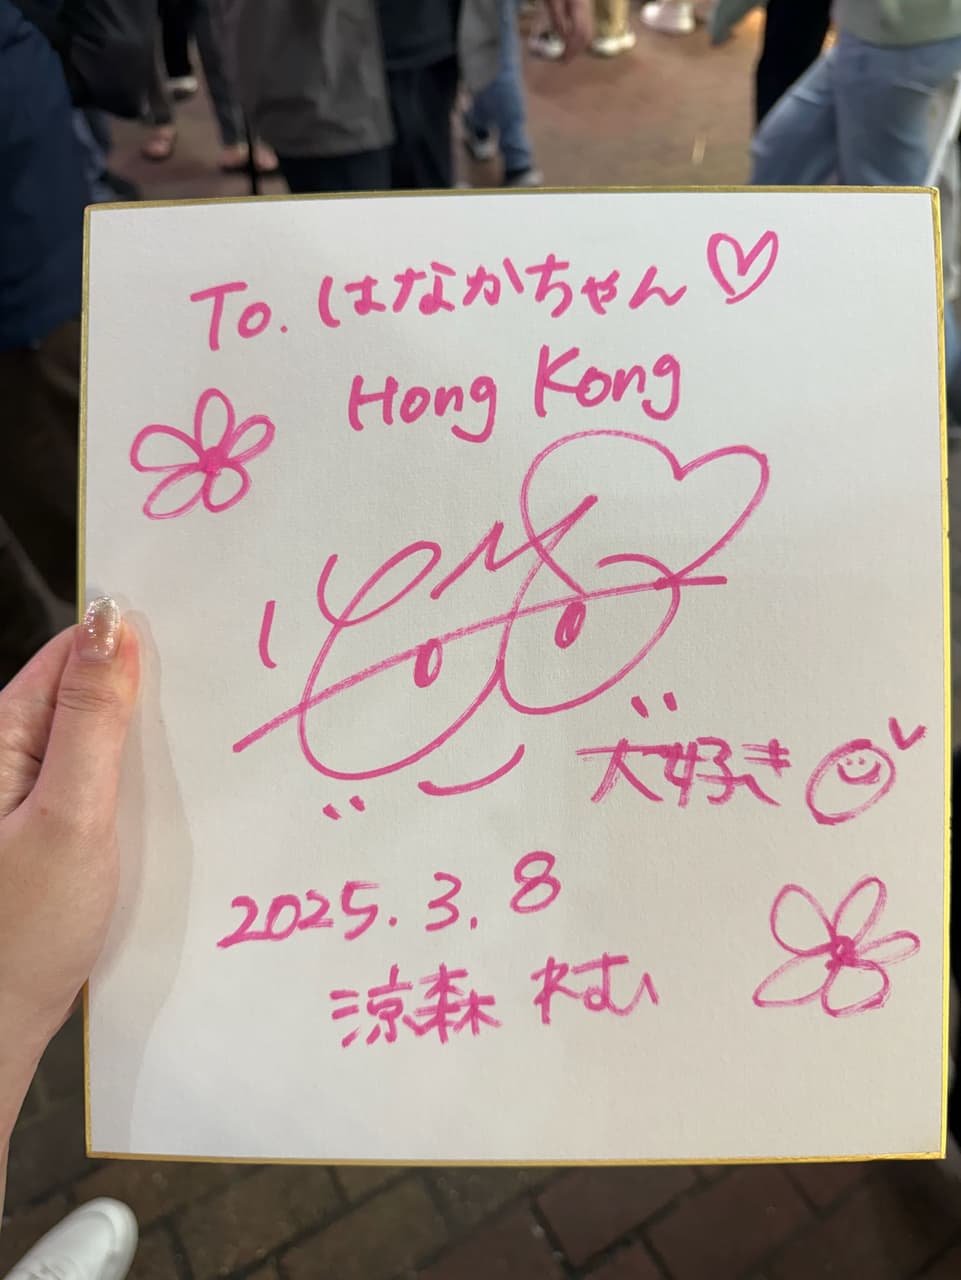 To. はなかちゃん♡
Hong Kong
大好き
2025.3.8
涼森れむ